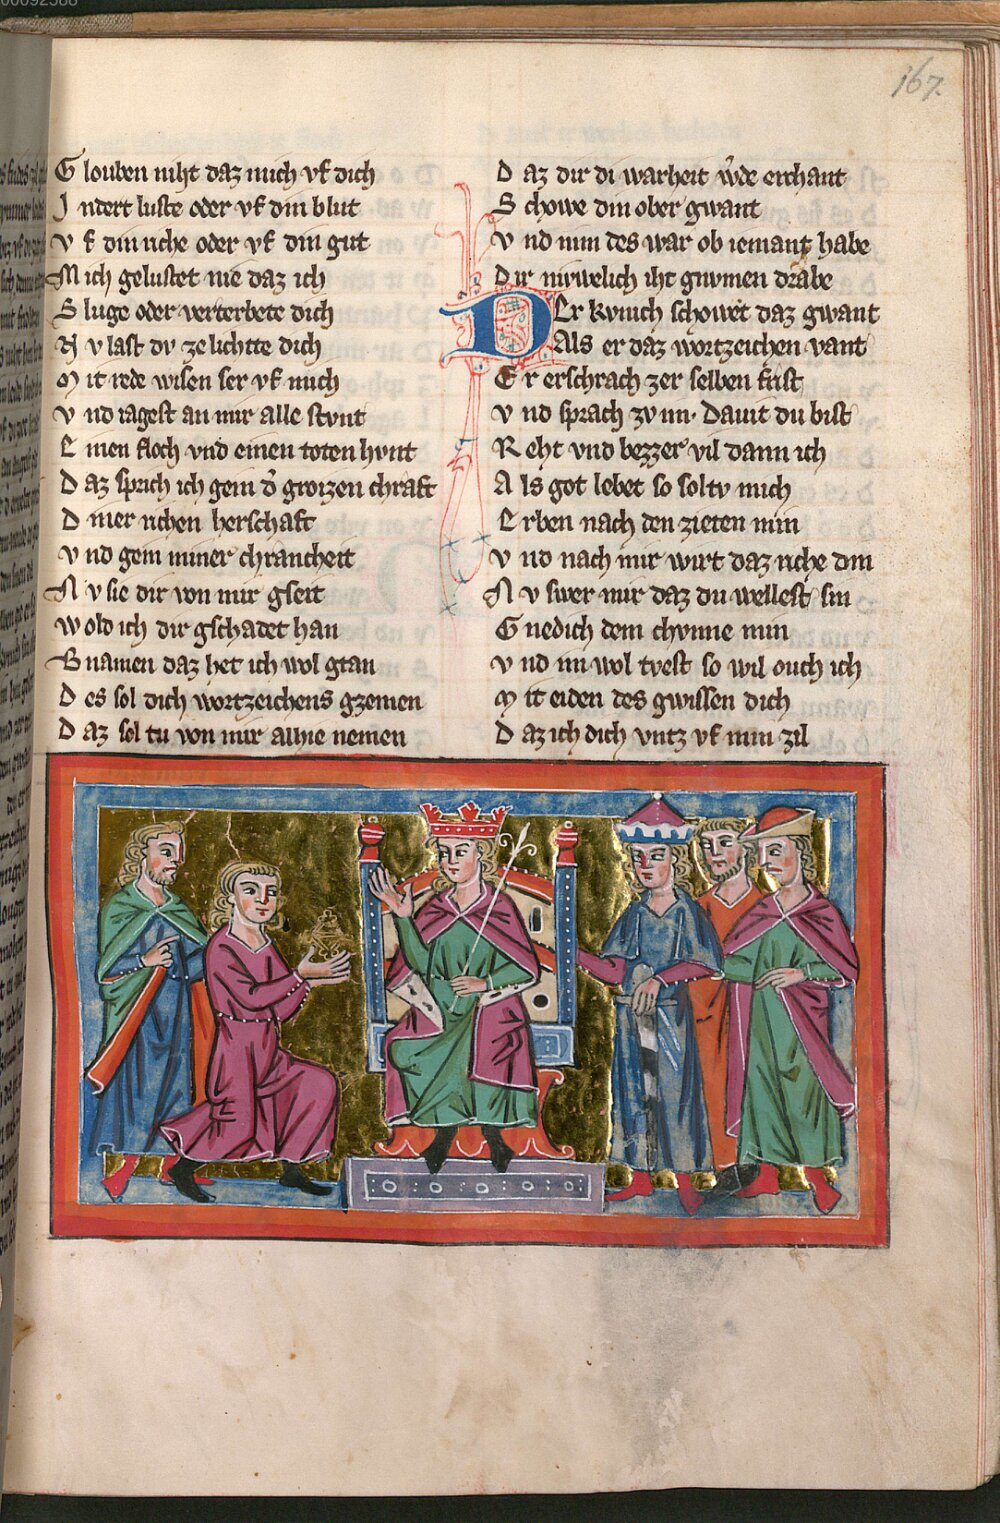 167.
G louben niht daz mich vf dich
I ndert luste oder vf din blut
V f din riche oder vf din gut
M ich gelustet nie daz ich
S luge oder verterbete dich
N v last dv ze lichtte dich
M it rede wisen ser vf mich
V nd iagest an mir alle stvnt
E inen floch vnd einen toten hvnt
D az sprich ich gein d͛ groizen chraft
D iner richen herschaft
V nd gein miner chrancheit
N v sie dir von mir gseit
W old ich dir gschadet han
B namen daz het ich wol gtan
D es sol dich wortzeichens gzemen
D az sol tu von mir alhie nemen
D az dir di warheit w͛de erchant
S chowe din ober gwant
V nd nim des war ob iemant habe
D ir niwelich iht gnvmen drabe
D Er kvnich schowet daz gwant
Als er daz wortzeichen vant
E r erschrach zer selben frist
V nd sprach zv im· Dauit du bist
R eht vnd bezzer vil dann ich
A ls got lebet so soltv mich
E rben nach den zieten min
V nd nach mir wirt daz riche din
N v swer mir daz du wellest sin
G nedich dem chvnne min
V nd im wol tvest so wil ouch ich
M it eiden des gwissen dich
D az ich dich vntz vf min zil